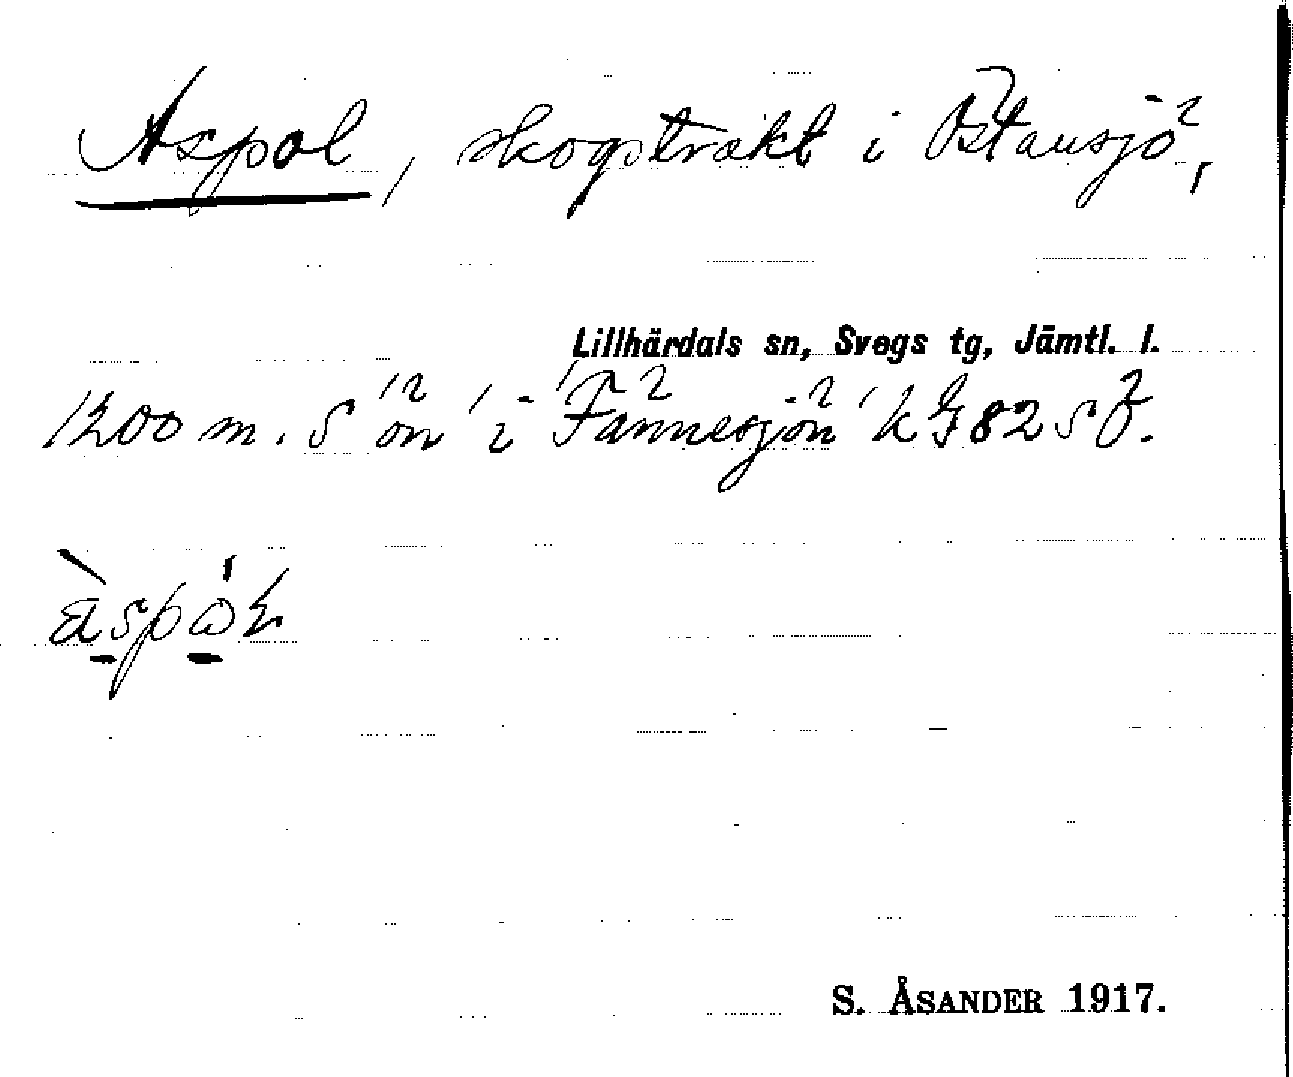 Aspol, skogstrakt i Östansjö,
Lillhärdals sn, Svegs tg, Jämtl. l.
1200 m. S ön i Fännesjön k G 82 S Ö.
S. ÅSANDER 1917.